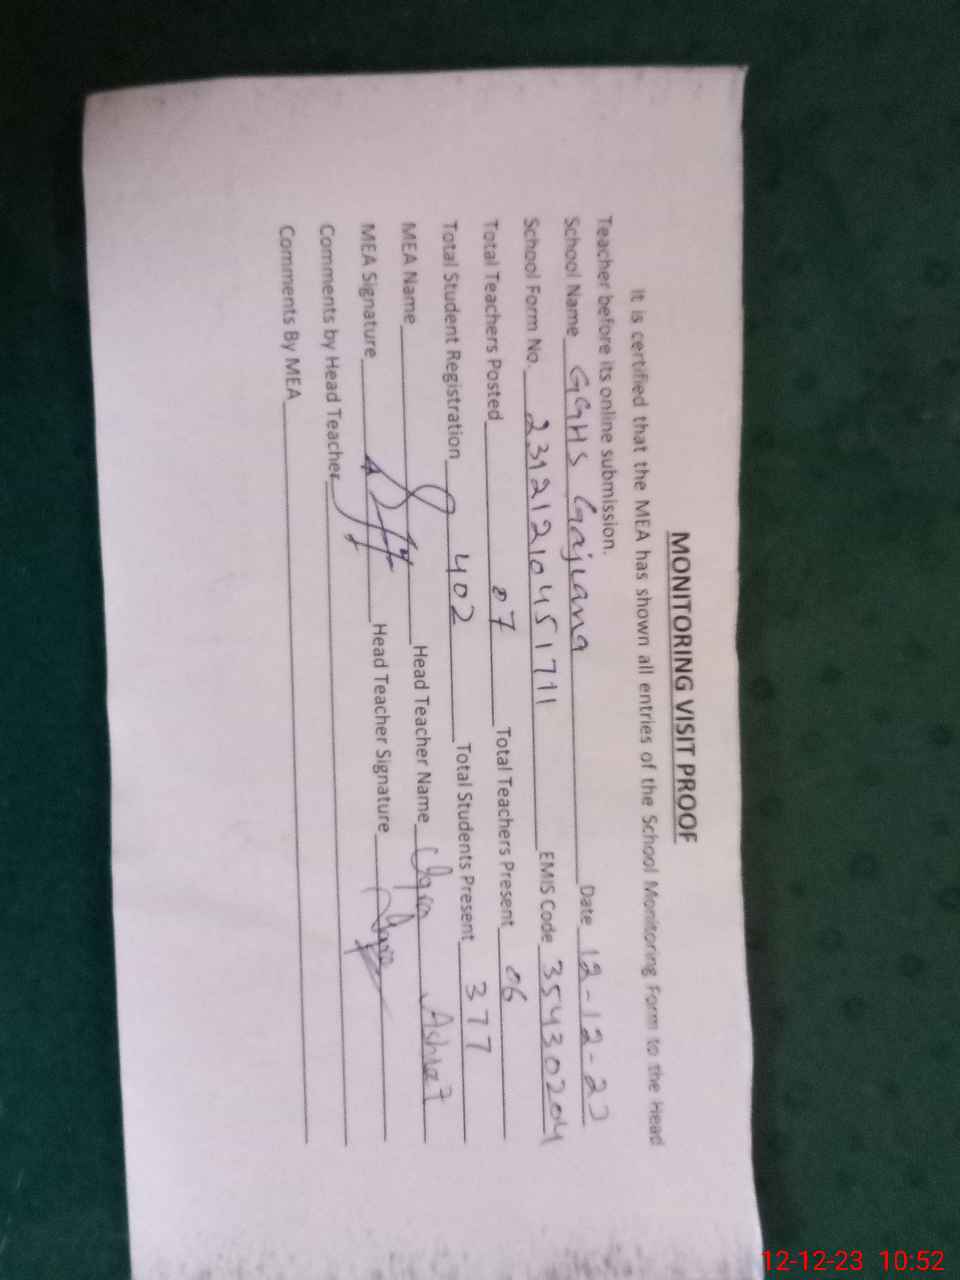 MONITORING VISIT PROOF
It is certified that the MEA has shown all entries of the School Monitoring Form to the Head
Teacher before its online submission.
School Name GGHS Gajiana Date 12-12-23
School Form No. 23121210451711 EMIS Code 35430204
Total Teachers Posted 07 Total Teachers Present 06
Total Student Registration 402 Total Students Present 377
MEA Name Head Teacher Name Ashraf
MEA Signature Head Teacher Signature
Comments by Head Teacher
Comments By MEA
12-12-23 10:52